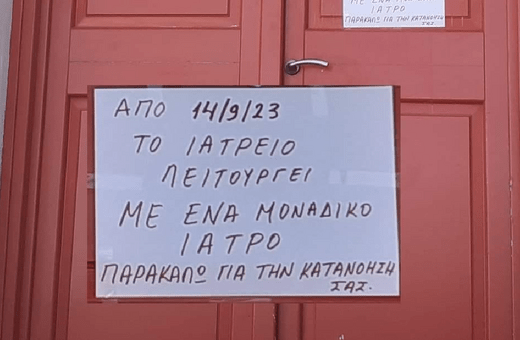 ΜΕ ΕΝΑ
ΙΑΤΡΟ
ΠΑΡΑΚΑΛΩ ΓΙΑ ΤΗΝ ΚΑΤΑΝΟΗΣΗ
ΣΑΣ.
ΑΠΟ 14/9/23
ΤΟ ΙΑΤΡΕΙΟ
ΛΕΙΤΟΥΡΓΕΙ
ΜΕ ΕΝΑ ΜΟΝΑΔΙΚΟ
ΙΑΤΡΟ
ΠΑΡΑΚΑΛΩ ΓΙΑ ΤΗΝ ΚΑΤΑΝΟΗΣΗ
ΣΑΣ.